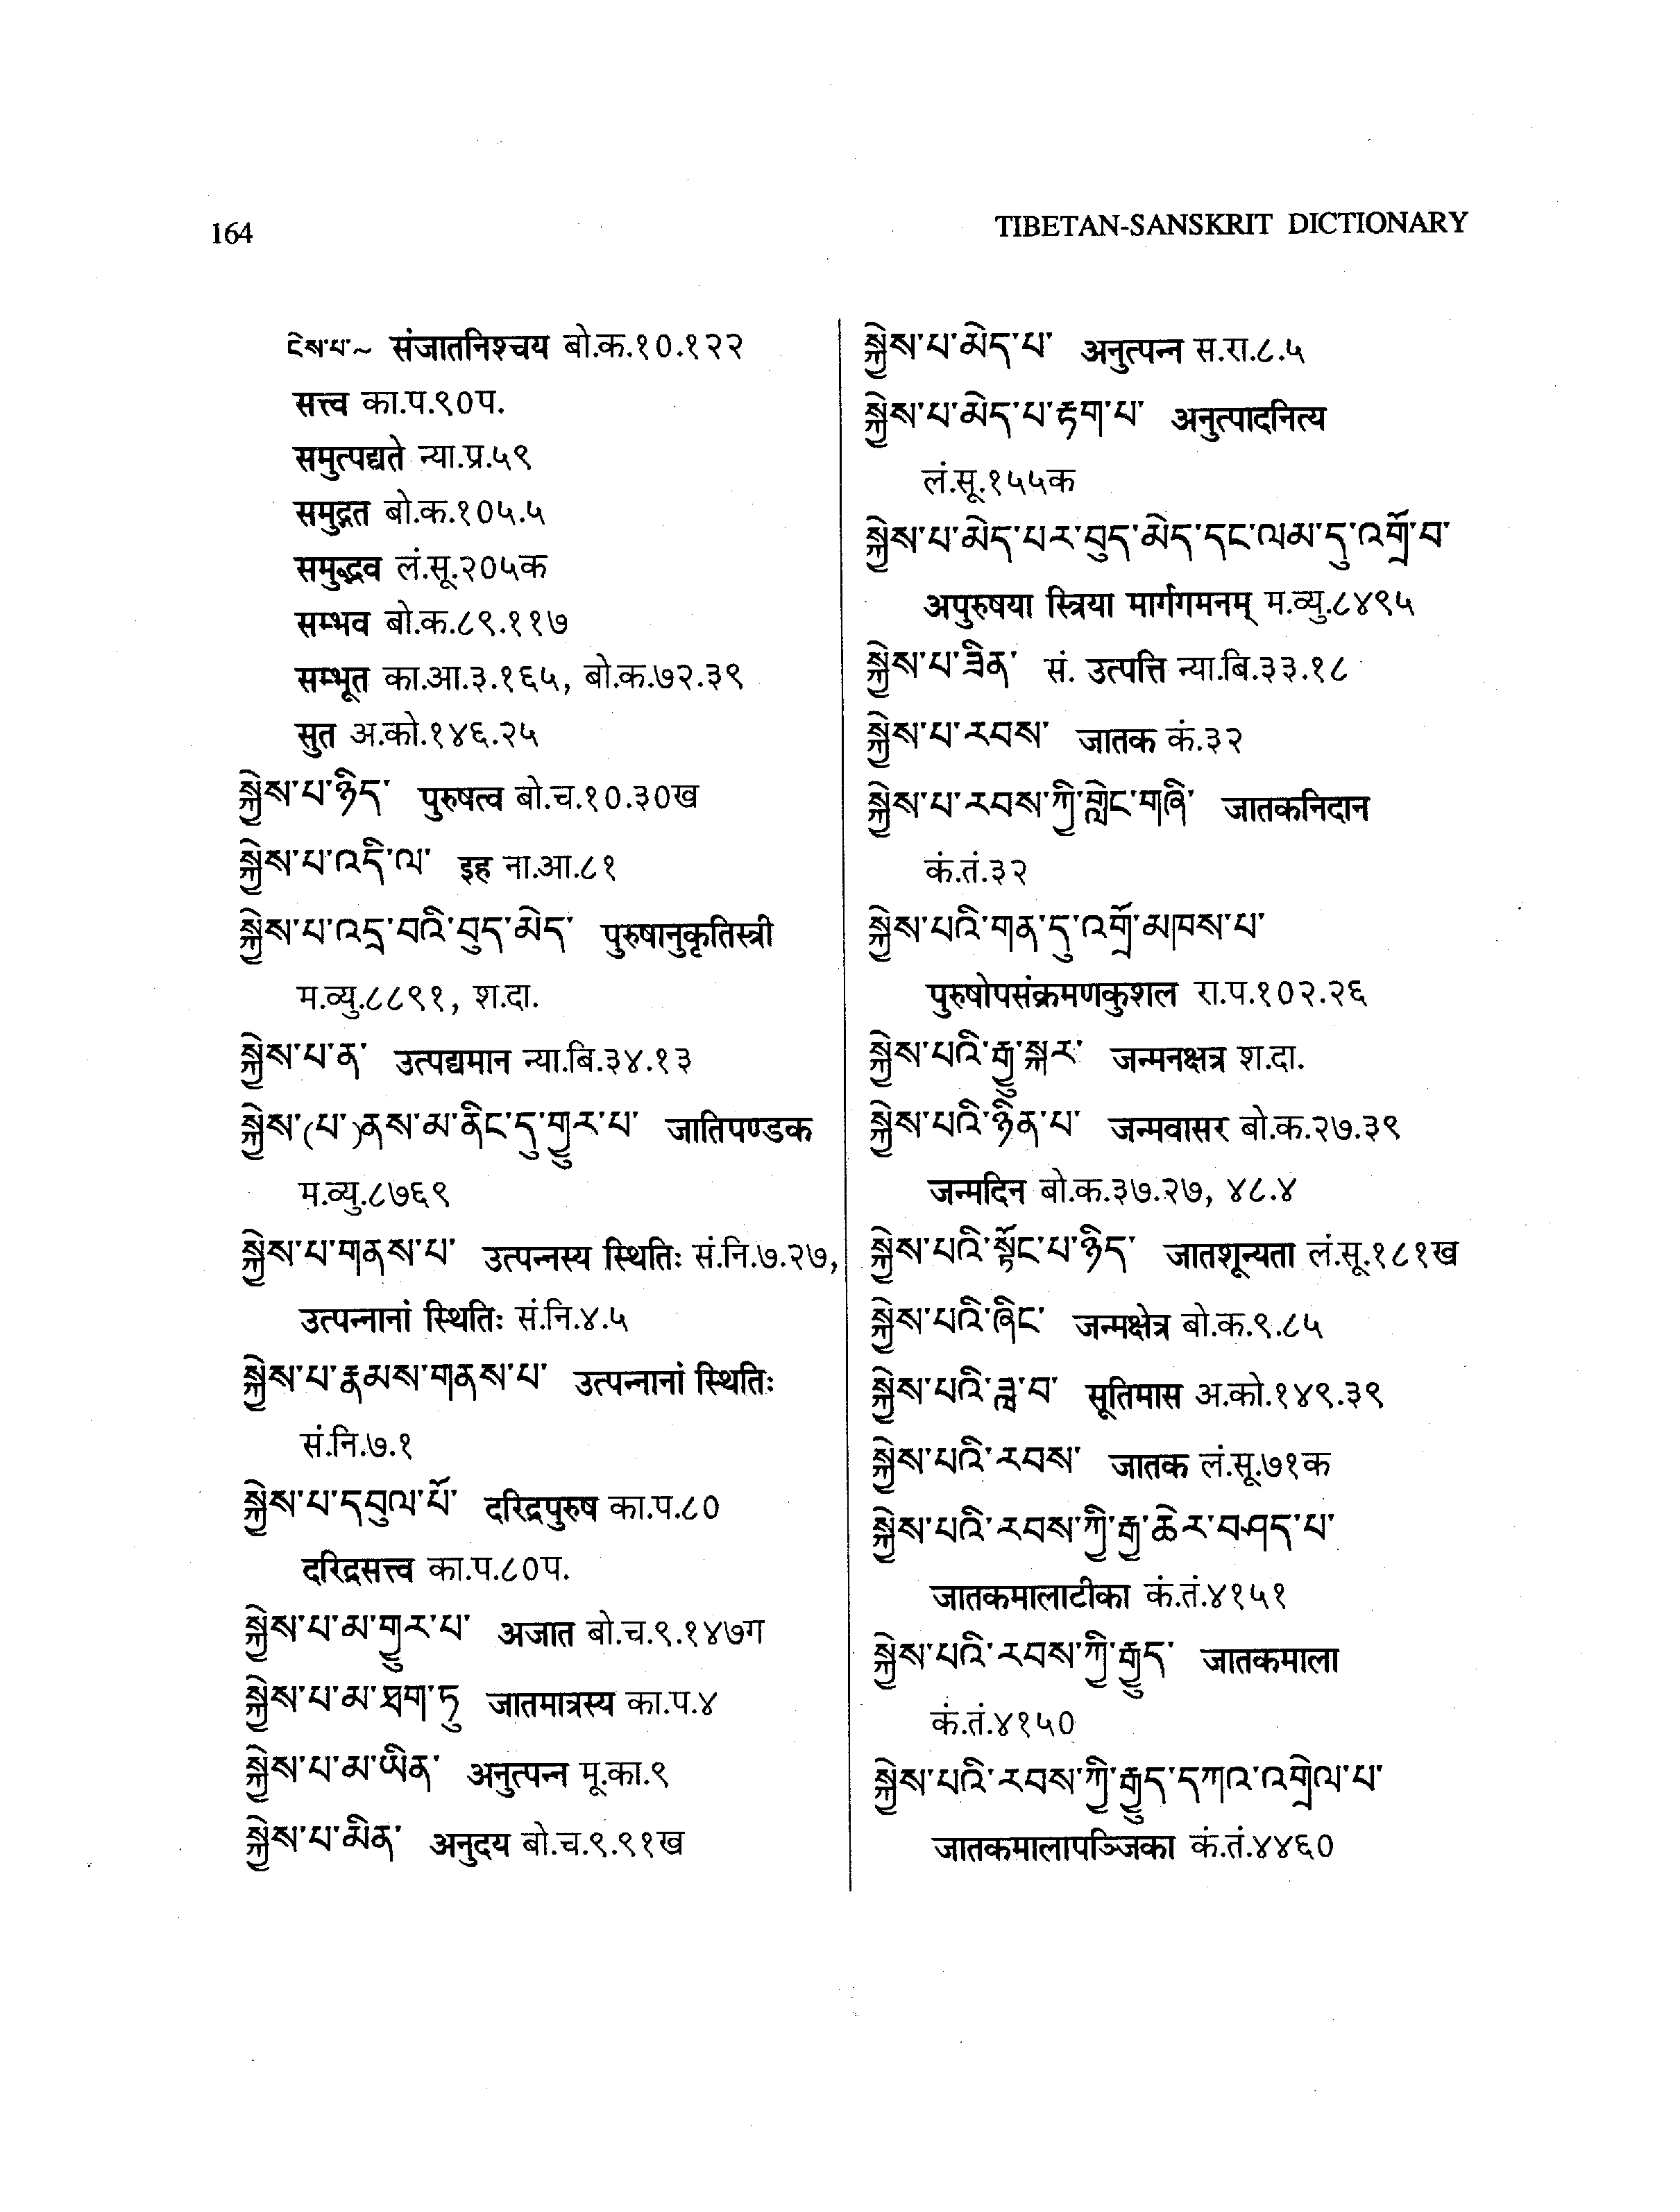 164
TIBETAN-SANSKRIT DICTIONARY
ངེས་པ་~ संजातनिश्चय बो.क.१०.१२२
सत्त्व का.प.९०प.
समुत्पद्यते न्या.प्र.५९
समुद्गत बो.क.१०५.५
समुद्भव लं.सू.२०५क
सम्भव बो.क.८९.११७
सम्भूत का.आ.३.१६५, बो.क.७२.३९
सुत अ.को.१४६.२५
སྐྱེས་པ་ཉིད་ पुरुषत्व बो.च.१०.३०ख
སྐྱེས་པ་འདི་ལ་ इह ना.आ.८१
སྐྱེས་པ་འདྲ་བའི་བུད་མེད་ पुरुषानुकृतिस्त्री
म.व्यु.८८९१, श.दा.
སྐྱེས་པ་ན་ उत्पद्यमान न्या.बि.३४.१३
སྐྱེས་(པ་)ནས་མ་ནིང་དུ་གྱུར་པ་ जातिपण्डक
म.व्यु.८७६९
སྐྱེས་པ་གནས་པ་ उत्पन्नस्य स्थितिः सं.नि.७.२७,
उत्पन्नानां स्थितिः सं.नि.४.५
སྐྱེས་པ་རྣམས་གནས་པ་ उत्पन्नानां स्थितिः
सं.नि.७.१
སྐྱེས་པ་དབུལ་པོ་ दरिद्रपुरुष का.प.८०
दरिद्रसत्त्व का.प.८०प.
སྐྱེས་པ་མ་གྱུར་པ་ अजात बो.च.९.१४७ग
སྐྱེས་པ་མ་ཐག་ཏུ जातमात्रस्य का.प.४
སྐྱེས་པ་མ་ཡིན་ अनुत्पन्न मू.का.९
སྐྱེས་པ་མིན་ अनुदय बो.च.९.९१ख
སྐྱེས་པ་མེད་པ་ अनुत्पन्न स.रा.८.५
སྐྱེས་པ་མེད་པ་རྟག་པ་ अनुत्पादनित्य
लं.सू.१५५क
སྐྱེས་པ་མེད་པར་བུད་མེད་དང་ལམ་དུ་འགྲོ་བ་
अपुरुषया स्त्रिया मार्गगमनम् म.व्यु.८४९५
སྐྱེས་པ་ཟིན་ सं. उत्पत्ति न्या.बि.३३.१८
སྐྱེས་པ་རབས་ जातक कं.३२
སྐྱེས་པ་རབས་ཀྱི་གླེང་གཞི་ जातकनिदान
कं.तं.३२
སྐྱེས་པའི་གན་དུ་འགྲོ་མཁས་པ་
पुरुषोपसंक्रमणकुशल रा.प.१०२.२६
སྐྱེས་པའི་རྒྱུ་སྐར་ जन्मनक्षत्र श.दा.
སྐྱེས་པའི་ཉིན་པ་ जन्मवासर बो.क.२७.३९
जन्मदिन बो.क.३७.२७, ४८.४
སྐྱེས་པའི་སྟོང་པ་ཉིད་ जातशून्यता लं.सू.१८१ख
སྐྱེས་པའི་ཞིང་ जन्मक्षेत्र बो.क.९.८५
སྐྱེས་པའི་ཟླ་བ་ सूतिमास अ.को.१४९.३९
སྐྱེས་པའི་རབས་ जातक लं.सू.७१क
སྐྱེས་པའི་རབས་ཀྱི་རྒྱ་ཆེར་བཤད་པ་
जातकमालाटीका कं.तं.४१५१
སྐྱེས་པའི་རབས་ཀྱི་རྒྱུད་ जातकमाला
कं.तं.४१५०
སྐྱེས་པའི་རབས་ཀྱི་རྒྱུད་དཀའ་འགྲེལ་པ་
जातकमालापञ्जिका कं.तं.४४६०